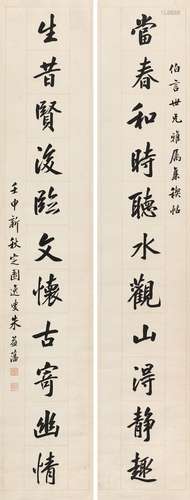 伯言世兄雅属集禊帖
當春和時聽水觀山得静趣
生昔賢後臨文懷古寄幽情
壬申新秋定園逸叟朱益藩